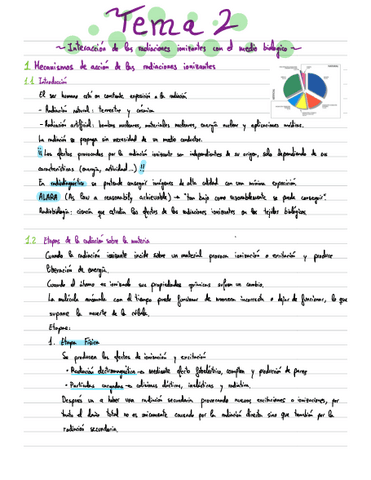 Tema 2
~ Interacción de las radiaciones ionizantes con el medio biológico ~
1. Mecanismos de acción de las radiaciones ionizantes
1.1. Introducción
El ser humano está en constante exposición a la radiación
- Radiación natural: terrestre y cósmica.
- Radiación artificial: bombas nucleares, materiales nucleares, energía nuclear y aplicaciones médicas.
La radiación se propaga sin necesidad de un medio conductor.
!! Los efectos provocados por la radiación ionizante son independientes de su origen, solo dependiendo de sus
características (energía, actividad...) !!
En radiodiagnóstico se pretende conseguir imágenes de alta calidad con una mínima exposición.
ALARA (As low a reasonably achievable) → "tan bajo como razonablemente se pueda conseguir".
Radiobiología: ciencia que estudia los efectos de las radiaciones ionizantes en los tejidos biológicos.
1.2. Etapas de la radiación sobre la materia
Cuando la radiación ionizante incide sobre un material provoca ionización o excitación y produce
liberación de energía.
Cuando el átomo es ionizado sus propiedades químicas sufren un cambio.
La molécula anómala con el tiempo puede funcionar de manera incorrecta o dejar de funcionar, lo que
supone la muerte de la célula.
Etapas:
1. Etapa Física
Se producen los efectos de ionización y excitación
• Radiación electromagnética → mediante efecto fotoeléctrico, compton y producción de pares
• Partículas cargadas → colisiones elásticas, inelásticas y radiativa.
Después va a haber una radiación secundaria provocando nuevas excitaciones o ionizaciones, por
tanto el daño total no es únicamente causado por la radiación directa sino que también por la
radiación secundaria.